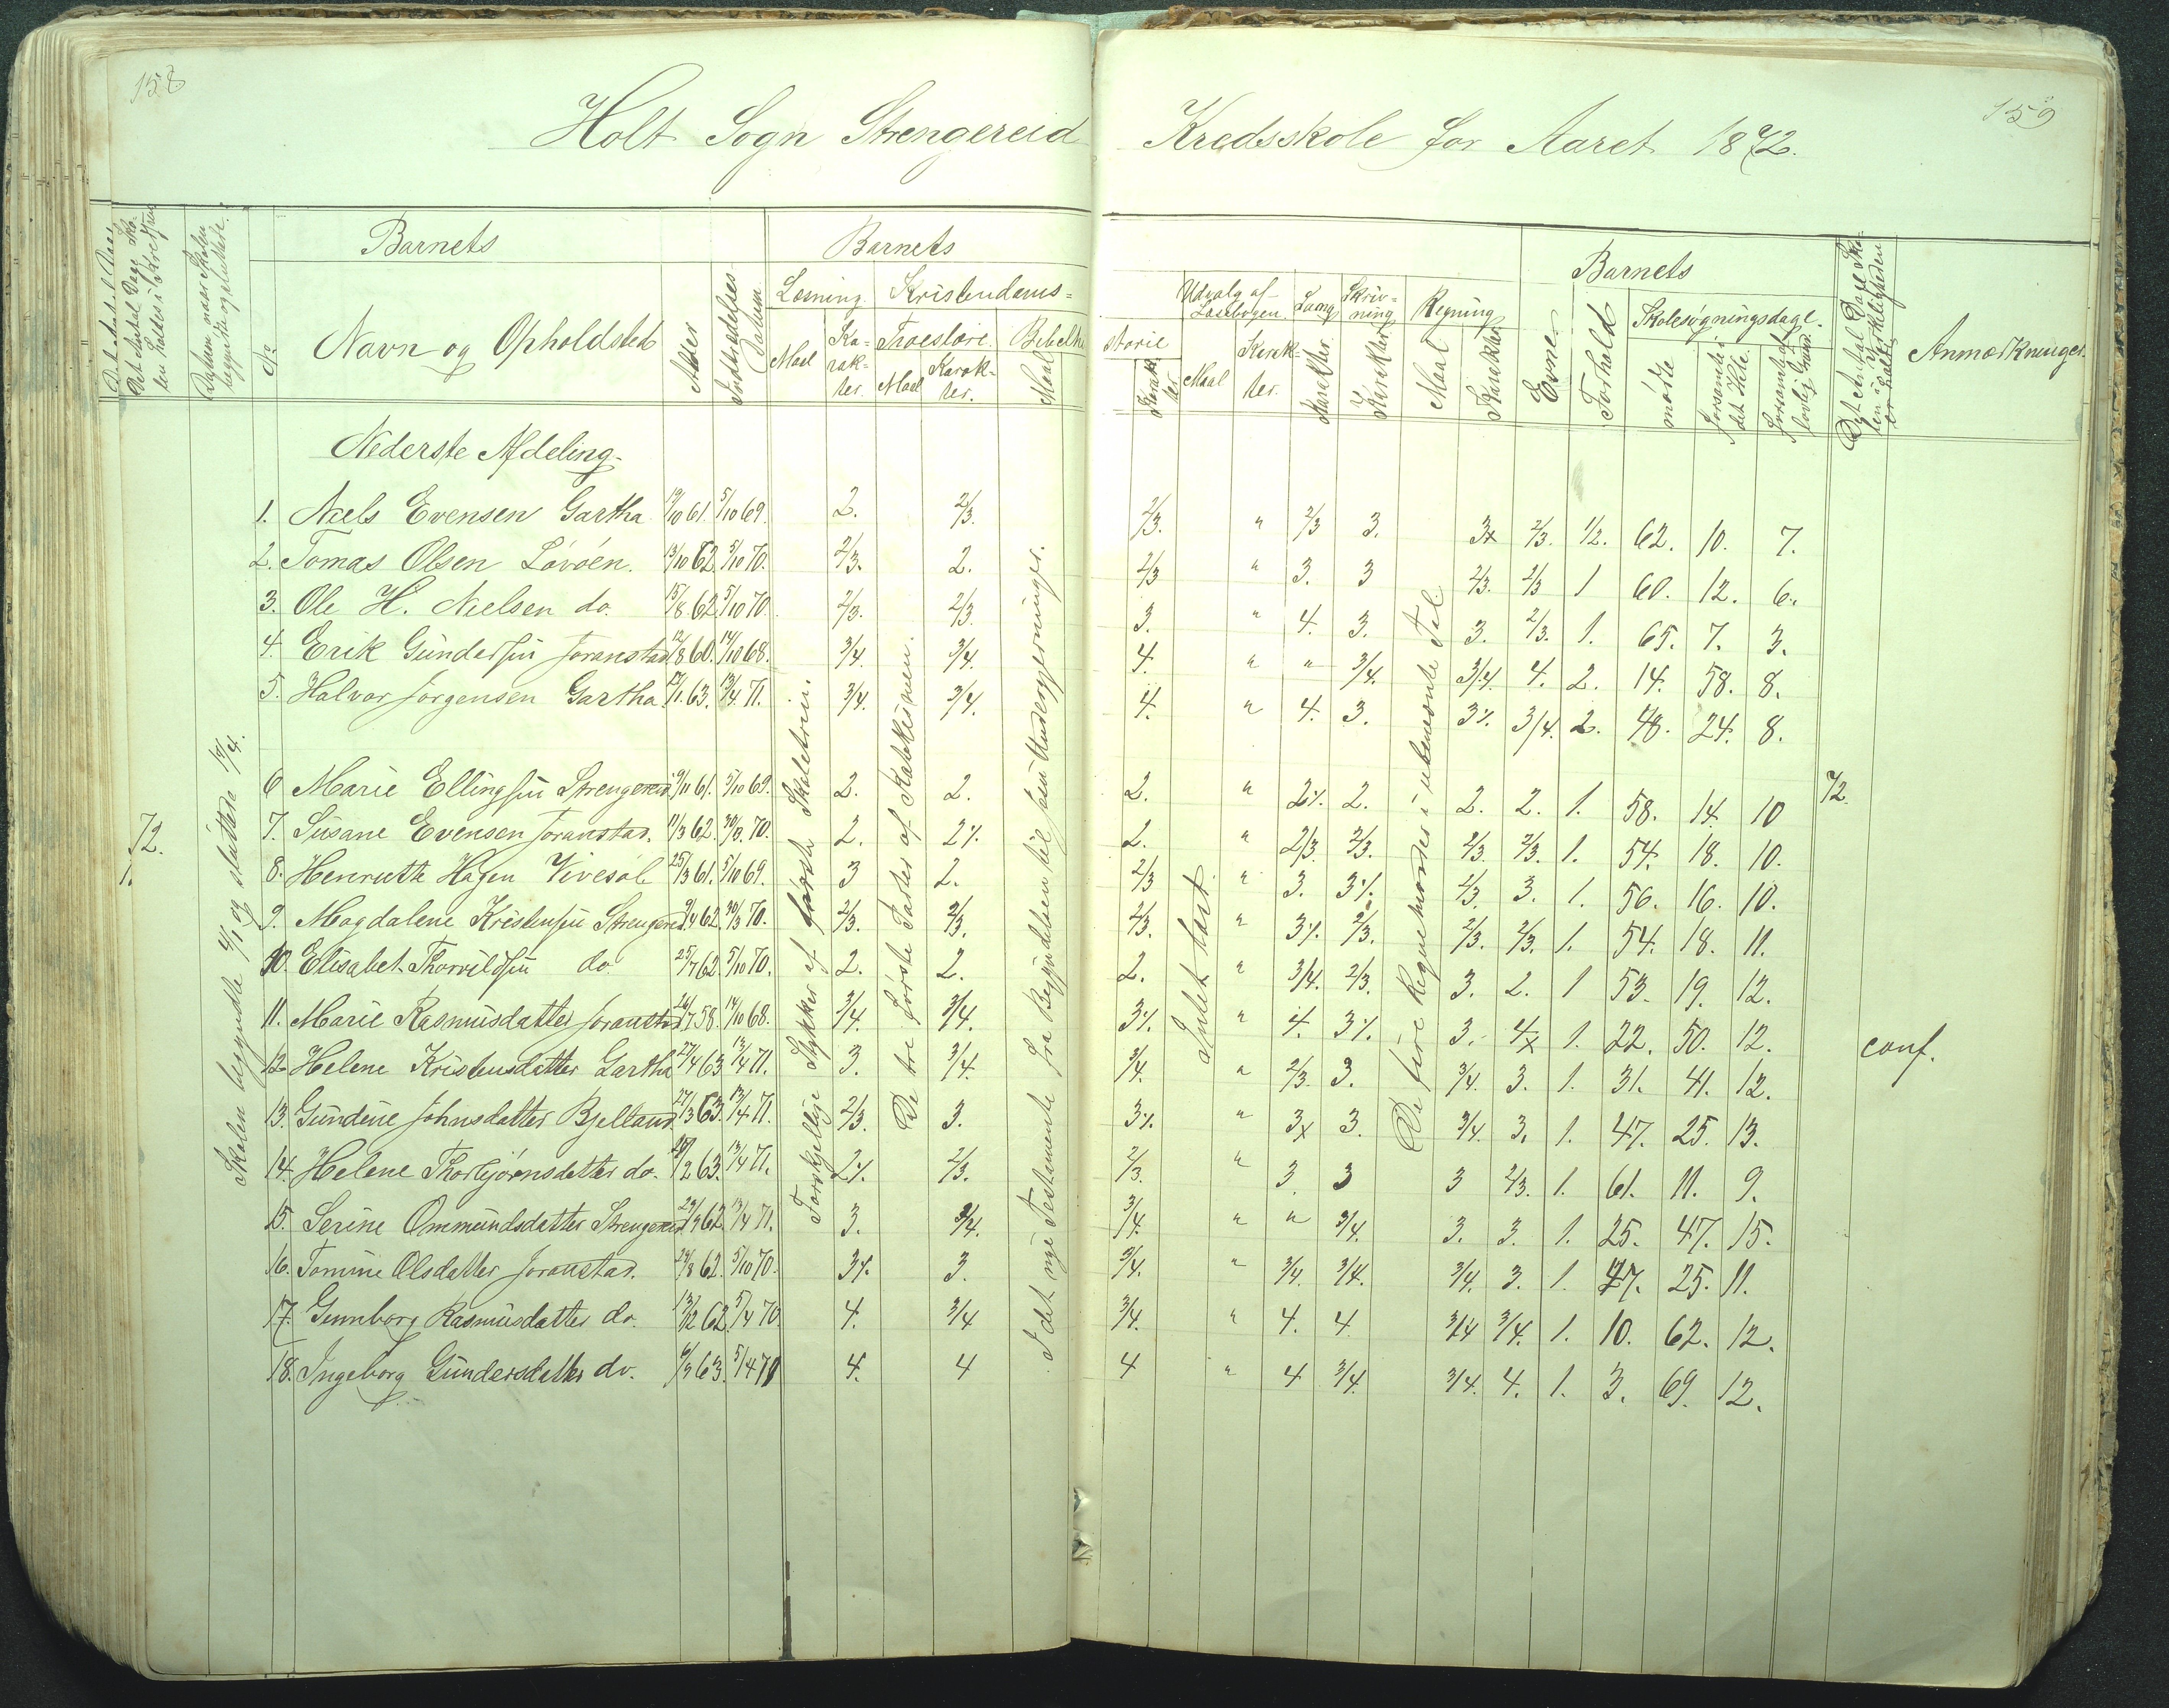 158
159
Holt Sogn Strengereid Kredsskole for Aaret 1872.
Barnets Barnets Barnets
Læsning. Kristendoms= Udvalg af Læsebogen. Sang Skriv= ning Regning Skolesøgningsdage.
No Navn og Opholdsted Alder Indtrædelses Datum Maal Ka- rak- ter. Troeslære. Maal Karak- ter. Bibelhi storie Maal Karak- ter. Maal Karak- ter. Karakter. Karakter Maal Karakter Evner Forhold mødte forsømte det Hele. forsømte af lovlig Grund. Anmærkninger.
Nederste Afdeling.
1. Niels Evensen Gartha 19/10 61. 5/10 69. 2. 2/3. 2/3. " 2/3 3. 3x 2/3. 1/2. 62. 10. 7.
2. Tomas Olsen Løvøen. 13/10 62 5/10 70. 2/3. 2. 2/3 " 3. 3 2/3. 2/3 1 60. 12. 6.
3. Ole H. Nielsen do. 15/8 62 5/10 70 2/3. 2/3. 3. " 4. 3. 3. 2/3. 1. 65. 7. 3.
4. Erik Gundersen Joranstad 12/8 60. 14/10 68. 3/4. 3/4. 4. " " 3/4. 3/4. 4. 2. 14. 58. 8.
5. Halvor Jørgensen Gartha 63. 13/4 71. 3/4. 3/4. 4. " 4. 3. 3%. 3/4. 2. 48. 24. 8.
6 Marie Ellingsen Strengereid 9/11 61. 5/10 69. 2. 2. 2. " 2%. 2. 2. 2. 1. 58. 14. 10 72.
72. 7. Susane Evensen Joranstad. 11/3 62. 70. 2. 2%. 2. " 2/3. 2/3. 2/3. 2/3. 1. 54. 18. 10.
8. Henriette Hagen Vivesøl 25/3 61. 5/10 69. 3 2. 2/3 " 3. 3%. 2/3. 3. 1. 56. 16. 10.
9. Magdalene Kristensen Strengereid 9/4 62. 30/3 70. 2/3. 2/3. 2/3. " 3%. 2/3. 2/3. 2/3. 1. 54. 18. 11.
10. Elisabet Thorvildsen do. 25/7 62 5/10 70. 2. 2. 2. " 3/4. 2/3. 3. 2. 1 53. 19. 12.
11. Marie Rasmusdatter Joranstad 26/7 58. 14/10 68. 3/4. 3/4. 3%. " 4. 3%. 3. 4x 1. 22. 50. 12. conf.
12. Helene Kristensdatter Gartha 27/4 63 13/4 71. 3. 3/4. 3/4. " 2/3. 3. 3/4. 3. 1. 31. 41. 12.
13. Gundine Johnsdatter Bjelland 27/3 63. 13/4 71. 2/3. 3. 3%. " 3x 3. 3/4. 3. 1. 47. 25. 13.
14. Helene Thorbjørnsdatter do. 63. 13/4 71. 2%. 2/3. 2/3. " 3. 3 3 2/3. 1. 61. 11. 9.
15. Serine Ommundsdatter Strengereid 62 13/4 71. 3. 3/4. 3/4. " " 3/4. 3. 3. 1. 25. 47. 15.
16. Tomine Olsdatter Joranstad. 62. 5/10 70. 3%. 3. 3/4. " 3/4. 3/4. 3/4. 3. 1. 47. 25. 11.
17. Gunnborg Rasmusdatter do. 13/12 62. 5/4 70 4. 3/4 3/4. " 4. 4 3/4 3/4. 1. 10. 62. 12.
18. Ingeborg Gundersdatter do. 63. 5/4 71 4. 4 4 " 4 3/4. 3/4. 4. 1. 3. 69. 12.
Skolen begyndte sluttede
Forskjellige Stykker af første Skoletrin.
De tre første Parter af Katekismen.
I det nye Testamente fra Begyndelsen til Jesu Undergjerninger.
Intet læst
De fire Regnemaader i ubenævnte Tal